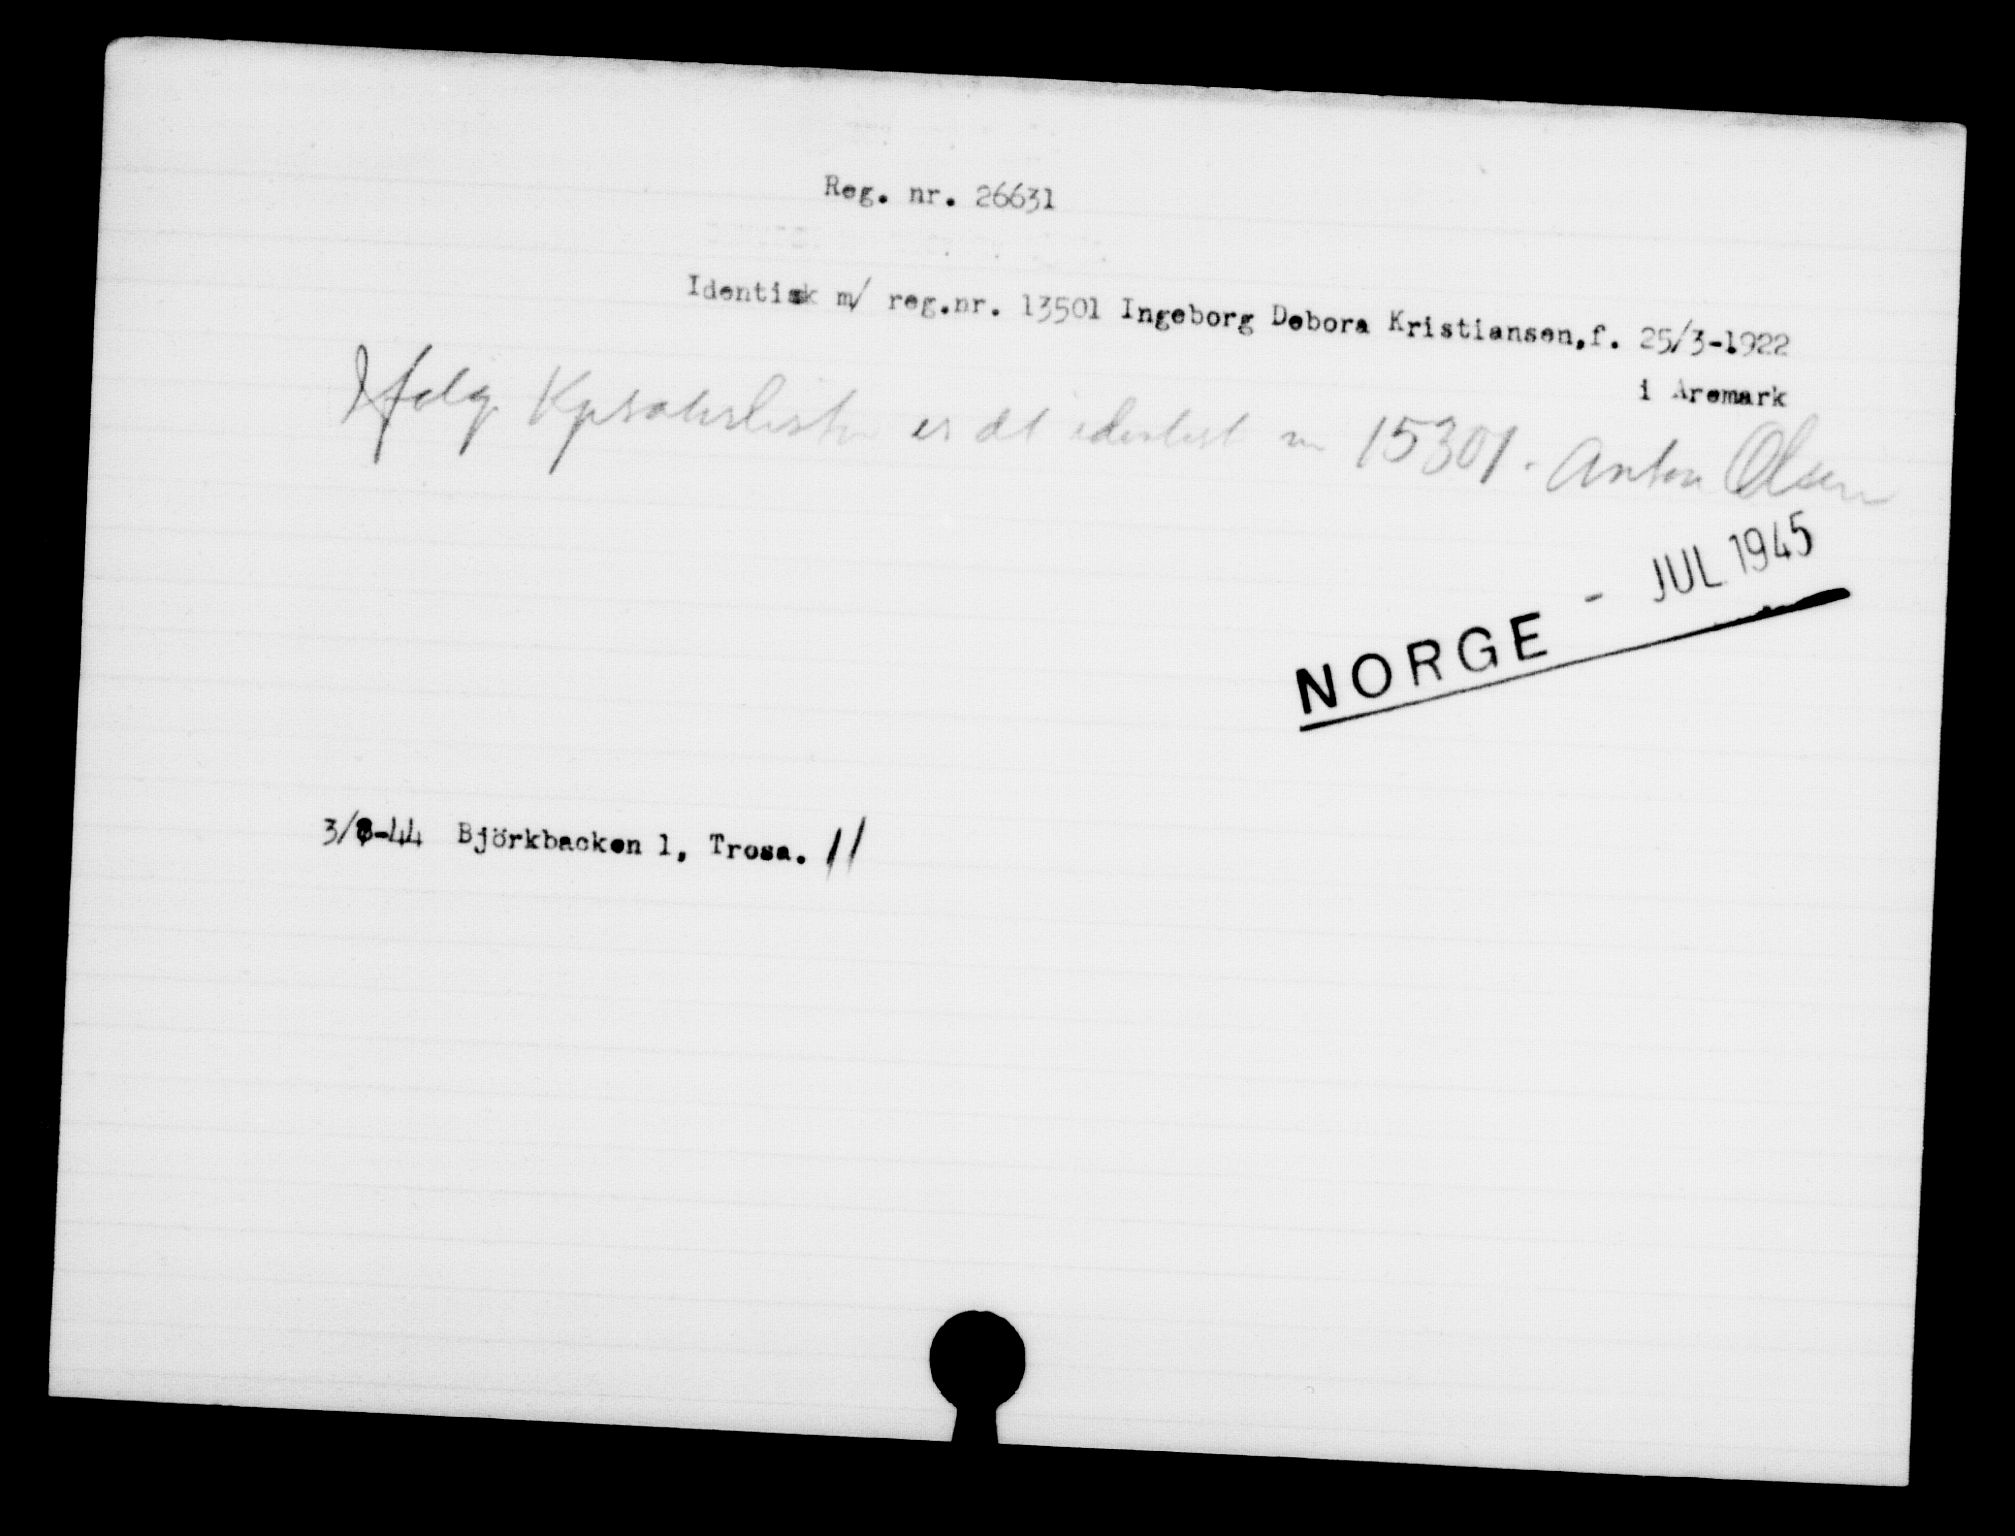 Reg. nr. 26631
Identisk m/ reg.nr. 13501 Ingeborg Debora Kristiansen, f. 25/3-1922
i Aremark
Ifølg er det identisk m 15301. Anton Olsen
- JUL 1945
NORGE
3/8-44 Björkbacken 1, Trosa. //